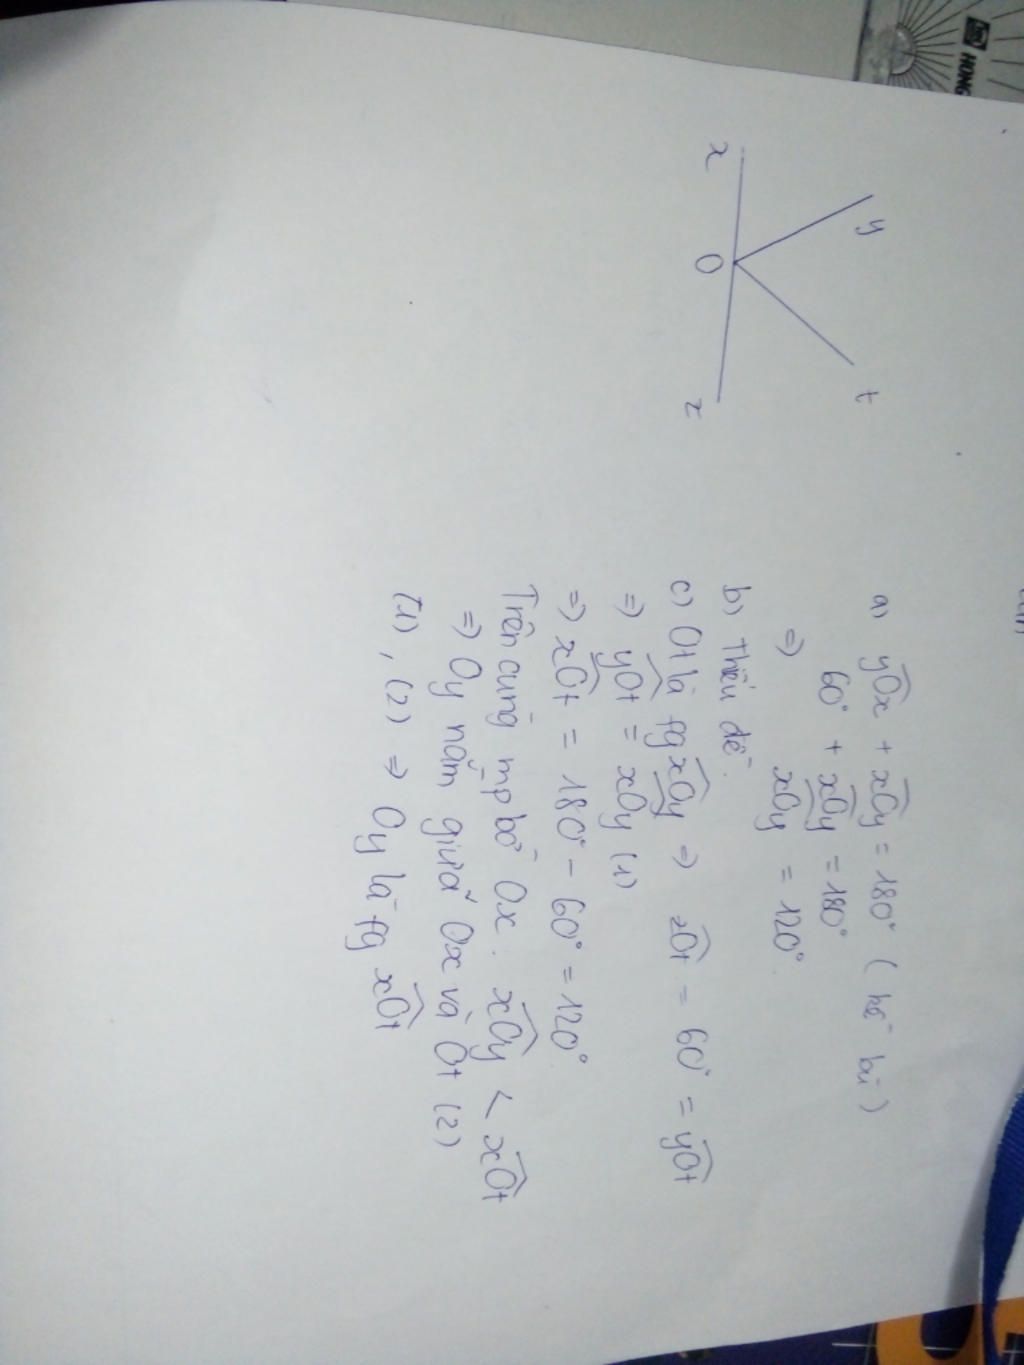 x
y
O
t
z
a) yOx + xOy = 180° (kề bù)
60° + xOy = 180°
=> xOy = 120°
b) Thiếu đề.
c) Ot là fg xOy => zOt = 60° = yOt
=> yOt = xOy (1)
=> xOt = 180° - 60° = 120°
Trên cùng mp bờ Ox: xOy < xOt
=> Oy nằm giữa Ox và Ot (2)
(1), (2) => Oy là fg xOt
HONG